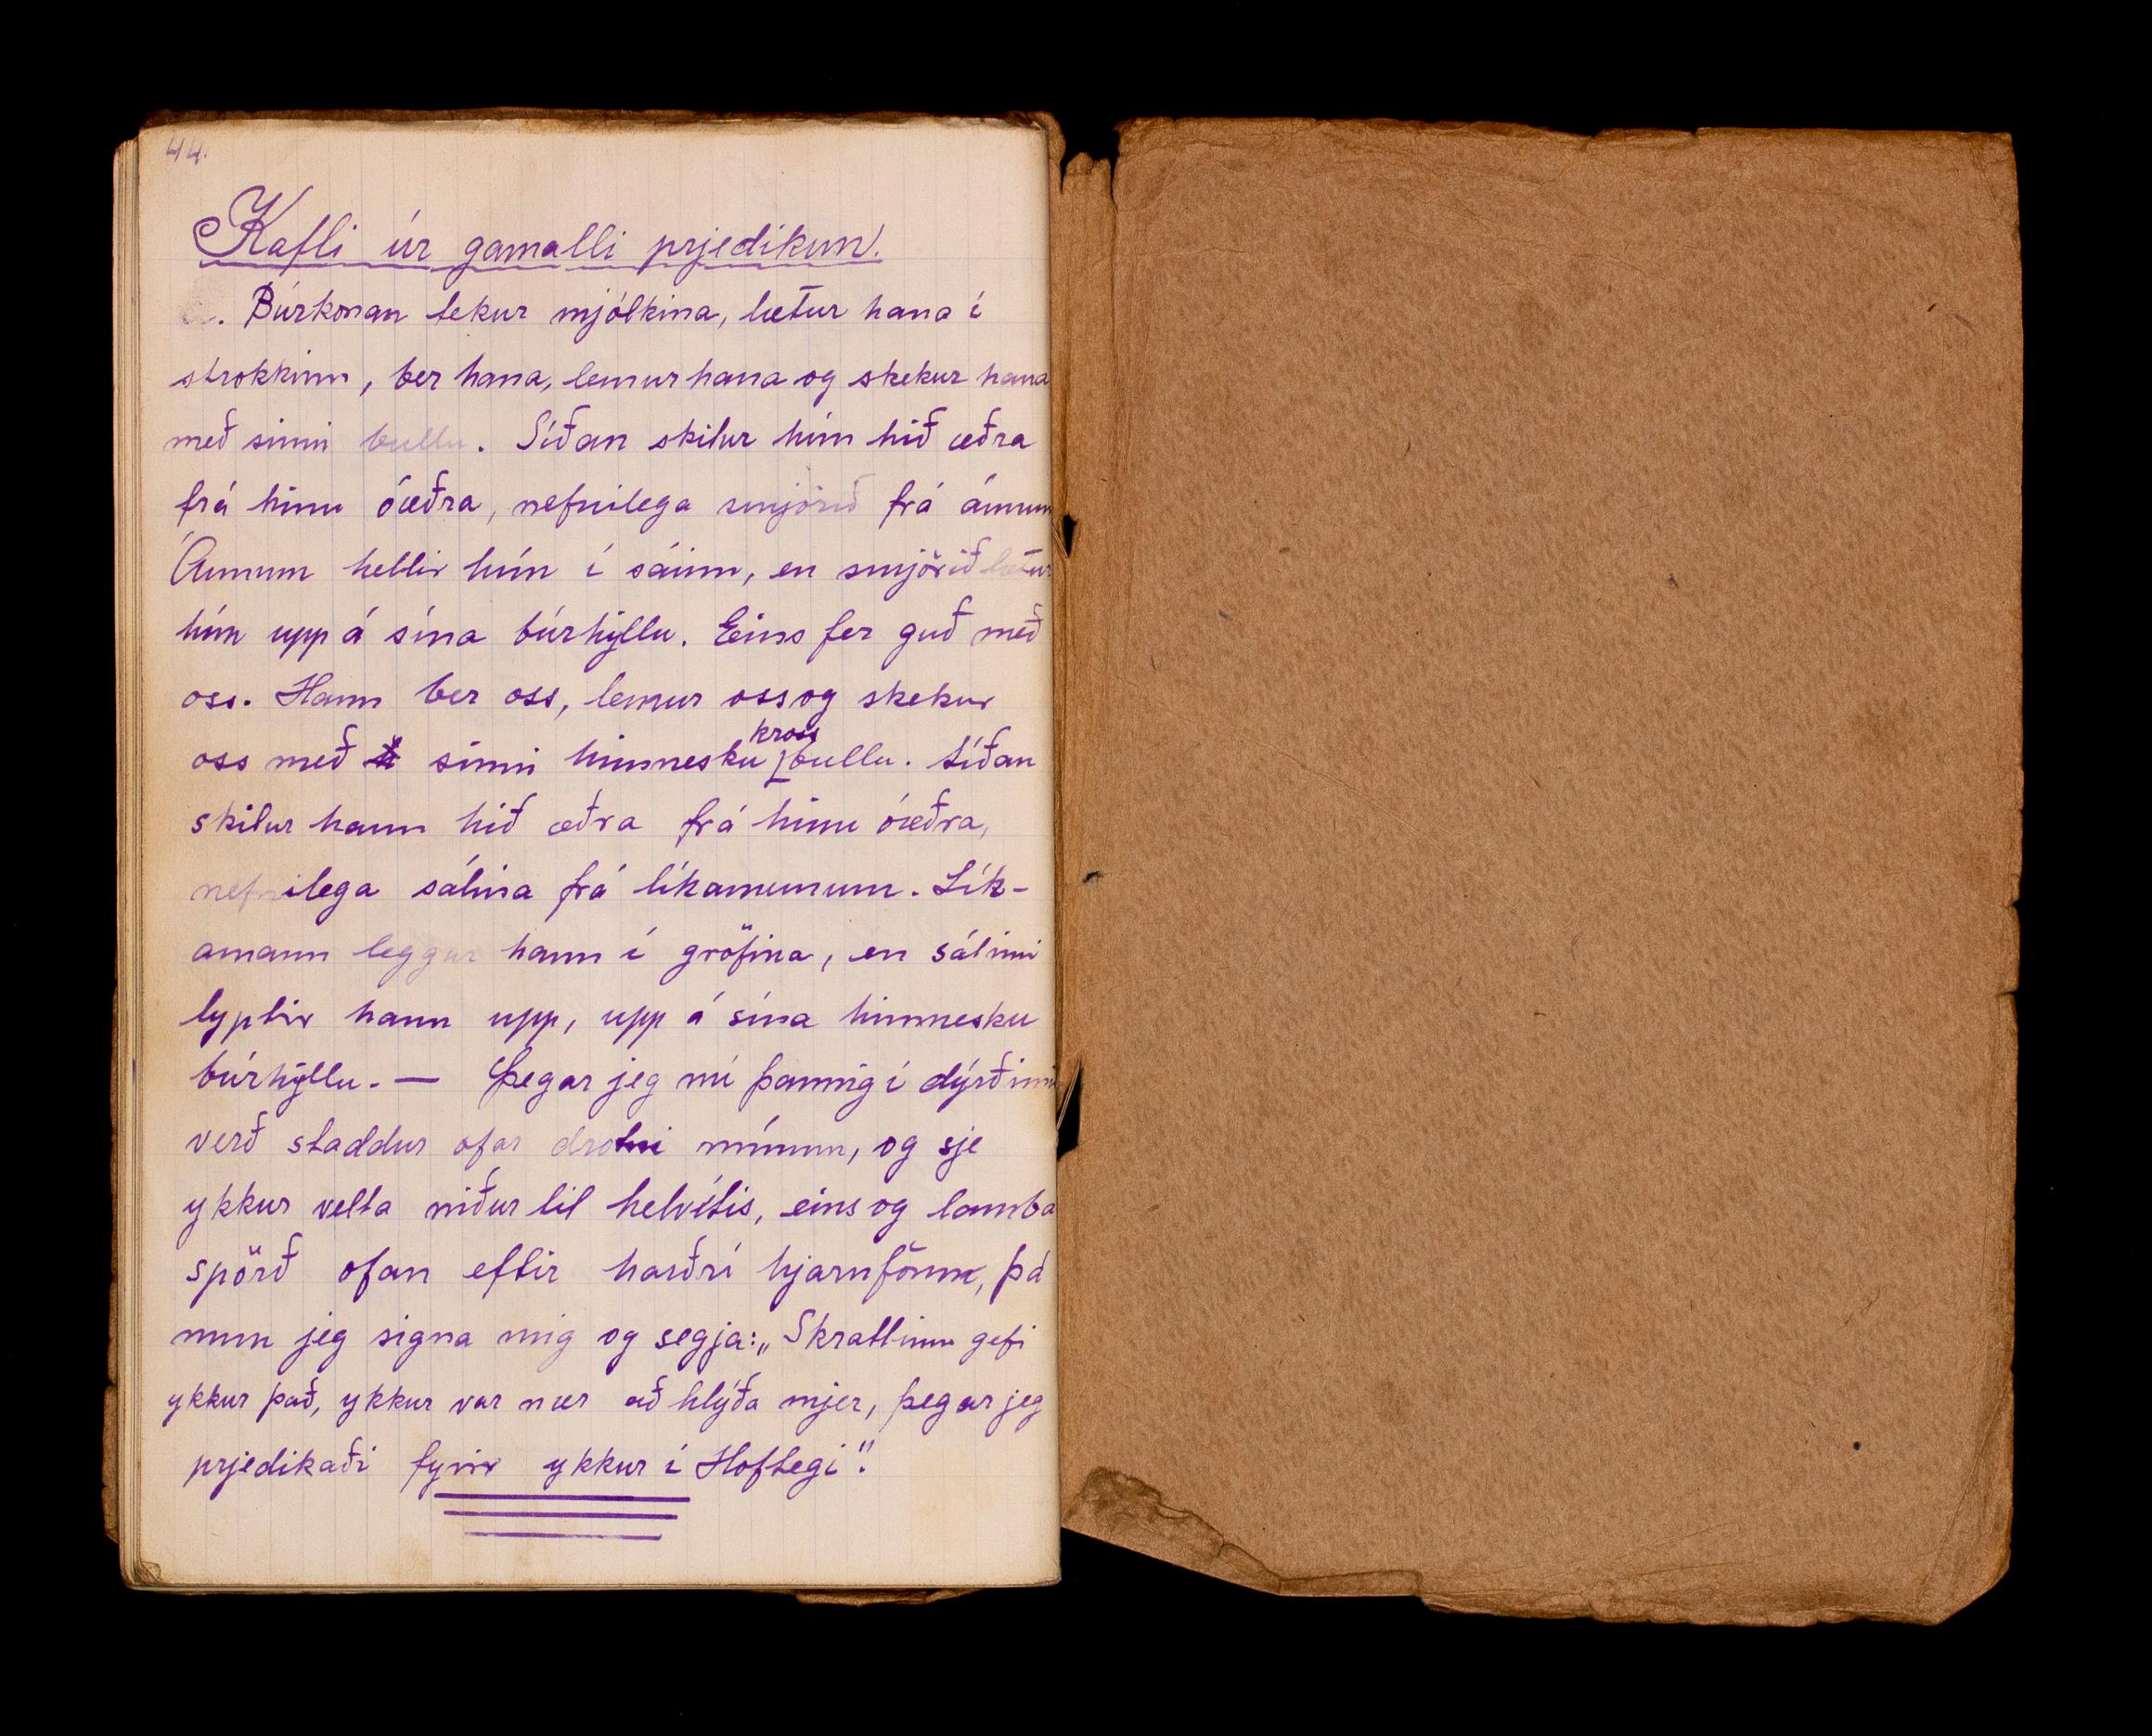 44.
Kafli úr gamalli prjedikun.
. Búrkonan tekur mjólkina, lætur hana í
strokkinn, ber hana, lemur hana og skekur hana
með sinni bullu. Síðan skilur hún hið æðra
frá hinu óæðra, nefnilega smjörið frá áunum
Áunum hellir hún í sáinn, en smjörið lætur
hún upp á sína búrhyllu. Eins fer guð með
oss. Hann ber oss, lemur oss og skekur
oss með sinni himnesku kross bullu. Síðan
skilur hann hið æðra frá hinu óæðra,
nefnilega sálina frá líkamunum. Lík-
amann leggur hann í gröfina, en sálinni
lyptir hann upp, upp á sína himnesku
búrhyllu. — Þegar jeg nú þannig í dýrðinni
verð staddur ofar drotni mínum, og sje
ykkur velta niður til helvítis, eins og lamba
spörð ofan eftir harðri hjarnfönn, þá
mun jeg signa mig og segja: „Skrattinn gefi
ykkur það, ykkur var nær að hlýða mjer, þegar jeg
prjedikaði fyrir ykkur í Hofteigi".